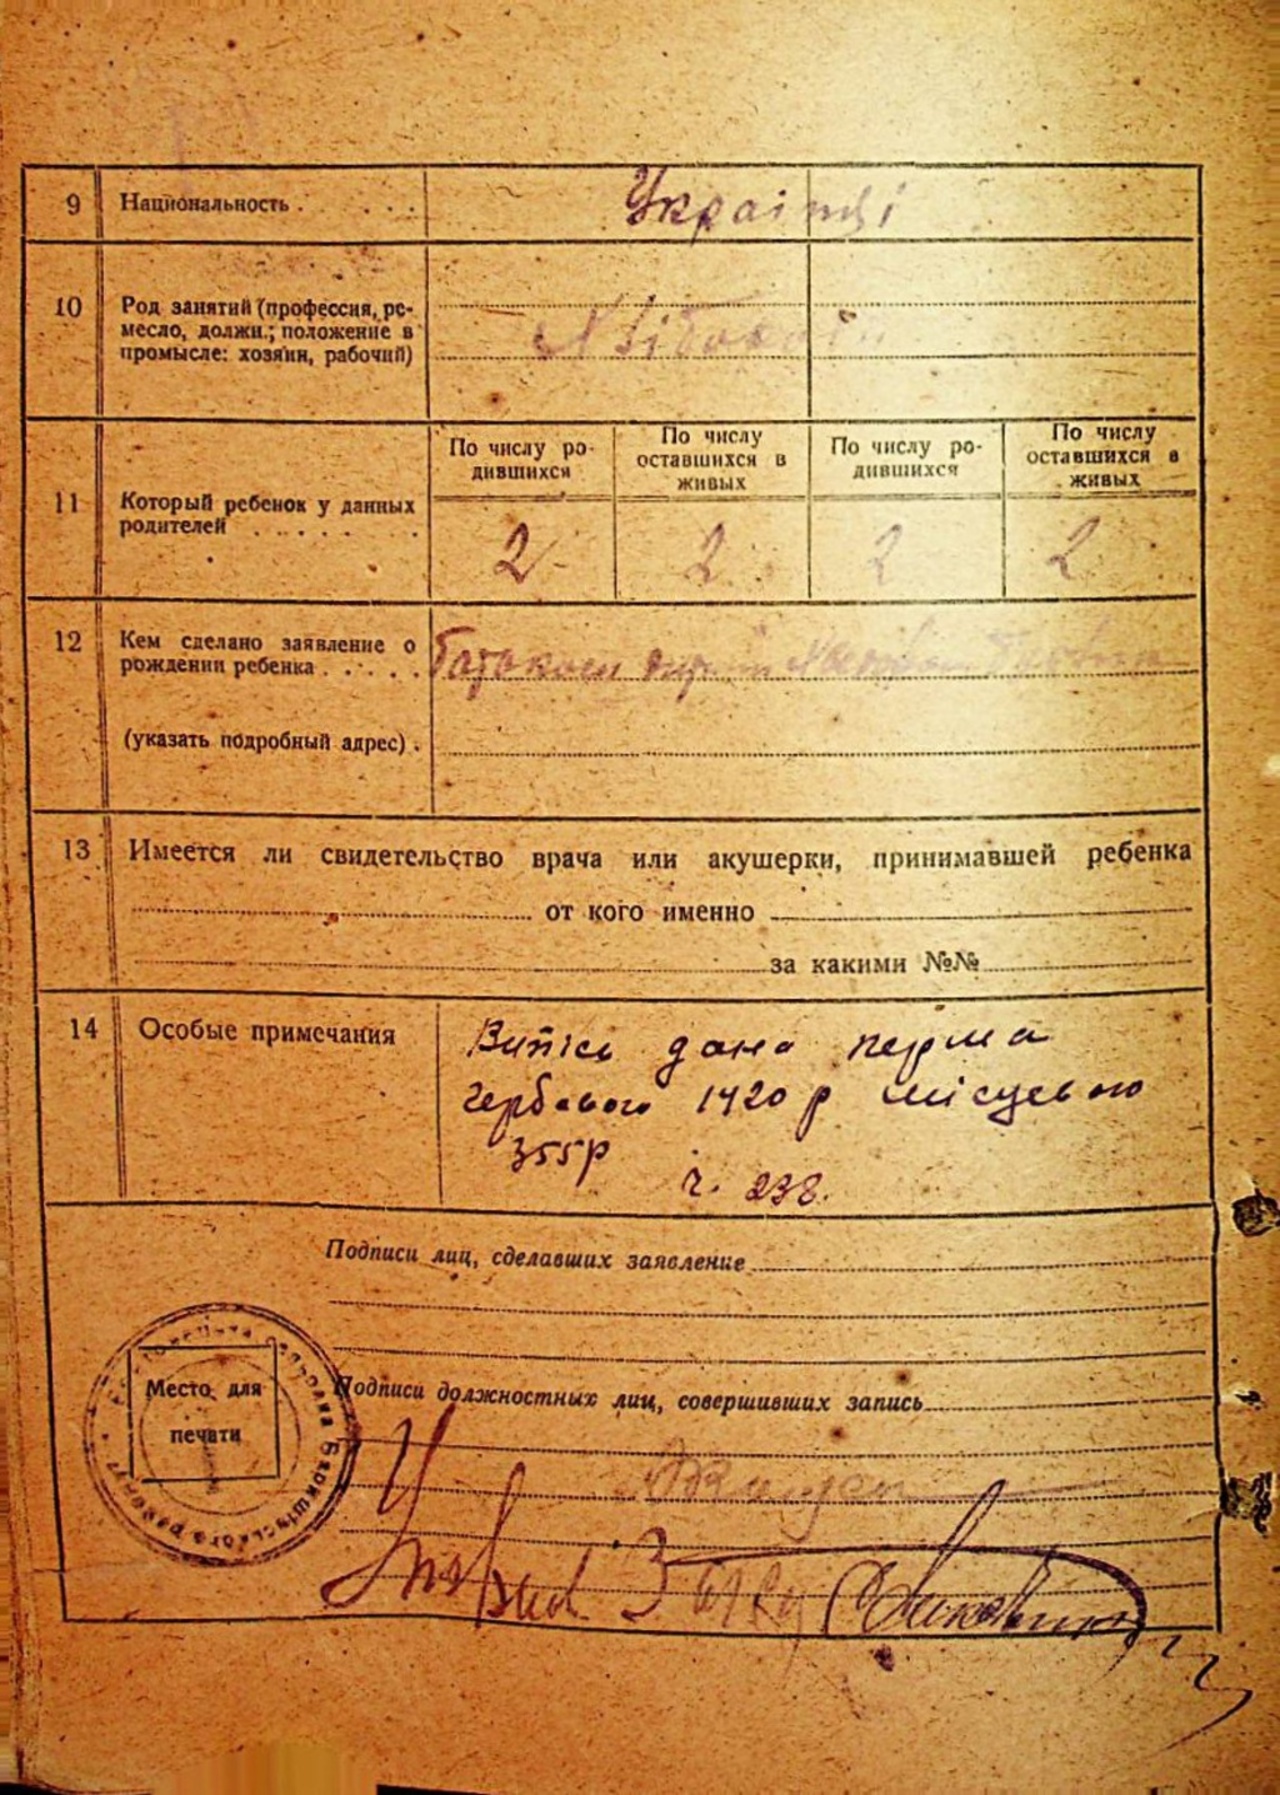 9 Национальность . . . . . Українці
10 Род занятий (профессия, ре-
месло, должн.; положение в
промысле: хозяин, рабочий)
Хлібороби
11 Который ребенок у данных
родителей . . . . . .
По числу ро-
дившихся
По числу
оставшихся в
живых
По числу ро-
дившихся
По числу
оставшихся в
живых
2 2 2 2
12 Кем сделано заявление о
рождении ребенка . . . . . Батьком
(указать подробный адрес) .
13 Имеется ли свидетельство врача или акушерки, принимавшей ребенка
от кого именно
за какими №№
14 Особые примечания
Витісь дана перша
гербового 1420 р місцевого
355р
ч. 238.
Подписи лиц, сделавших заявление
Место для
печати
Подписи должностных лиц, совершивших запись